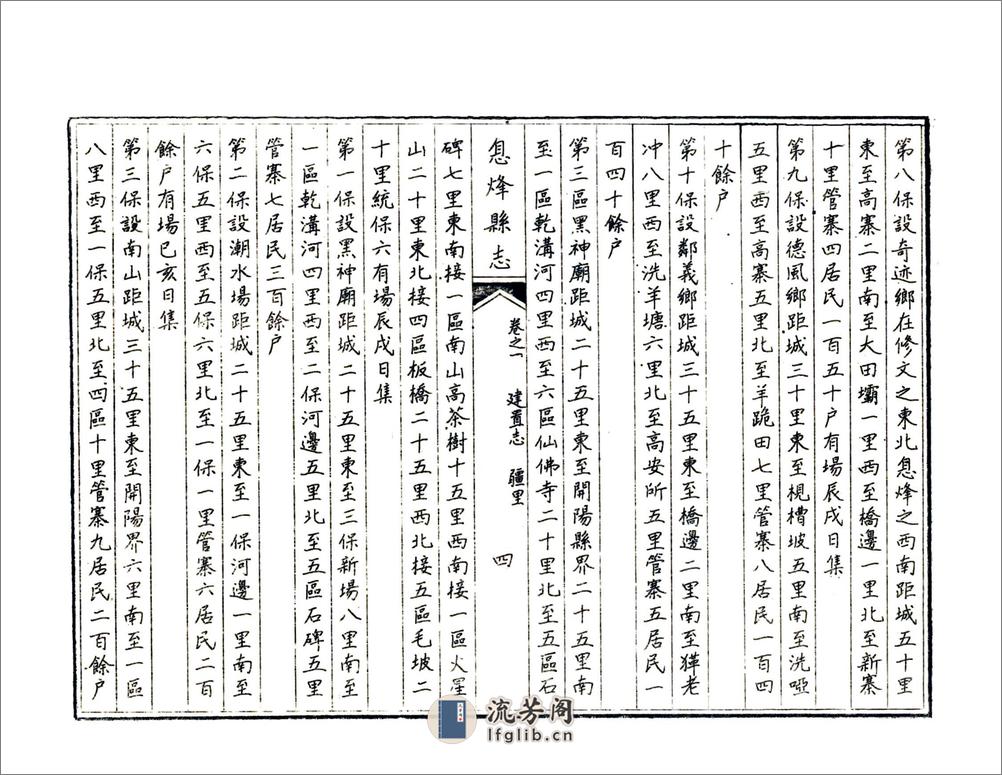 第八保設奇迹鄉在修文之東北息烽之西南距城五十里
東至高寨二里南至大田壩一里西至橋邊一里北至新寨
十里管寨四居民一百五十户有場辰戌日集
第九保設德風鄉距城三十里東至梘槽坡五里南至洗啞
五里西至高寨五里北至羊跪田七里管寨八居民一百四
十餘户
第十保設鄰義鄉距城三十五里東至橋邊二里南至獛老
冲八里西至洗羊塘六里北至高安所五里管寨五居民一
百四十餘户
第三區黑神廟距城二十五里東至開陽縣界二十五里南
至一區乾溝河四里西至六區仙佛寺二十里北至五區石
息烽縣志
卷之一 建置志 疆里
四
碑七里東南接一區南山高茶樹十五里西南接一區火星
山二十里東北接四區板橋二十五里西北接五區毛坡二
十里統保六有場辰戌日集
第一保設黑神廟距城二十五里東至三保新場八里南至
一區乾溝河四里西至二保河邊五里北至五區石碑五里
管寨七居民三百餘户
第二保設潮水場距城二十五里東至一保河邊一里南至
六保五里西至五保六里北至一保一里管寨六居民二百
餘户有場巳亥日集
第三保設南山距城三十五里東至開陽界六里南至一區
八里西至一保五里北至四區十里管寨九居民二百餘户
流芳阁
lfglib.cn